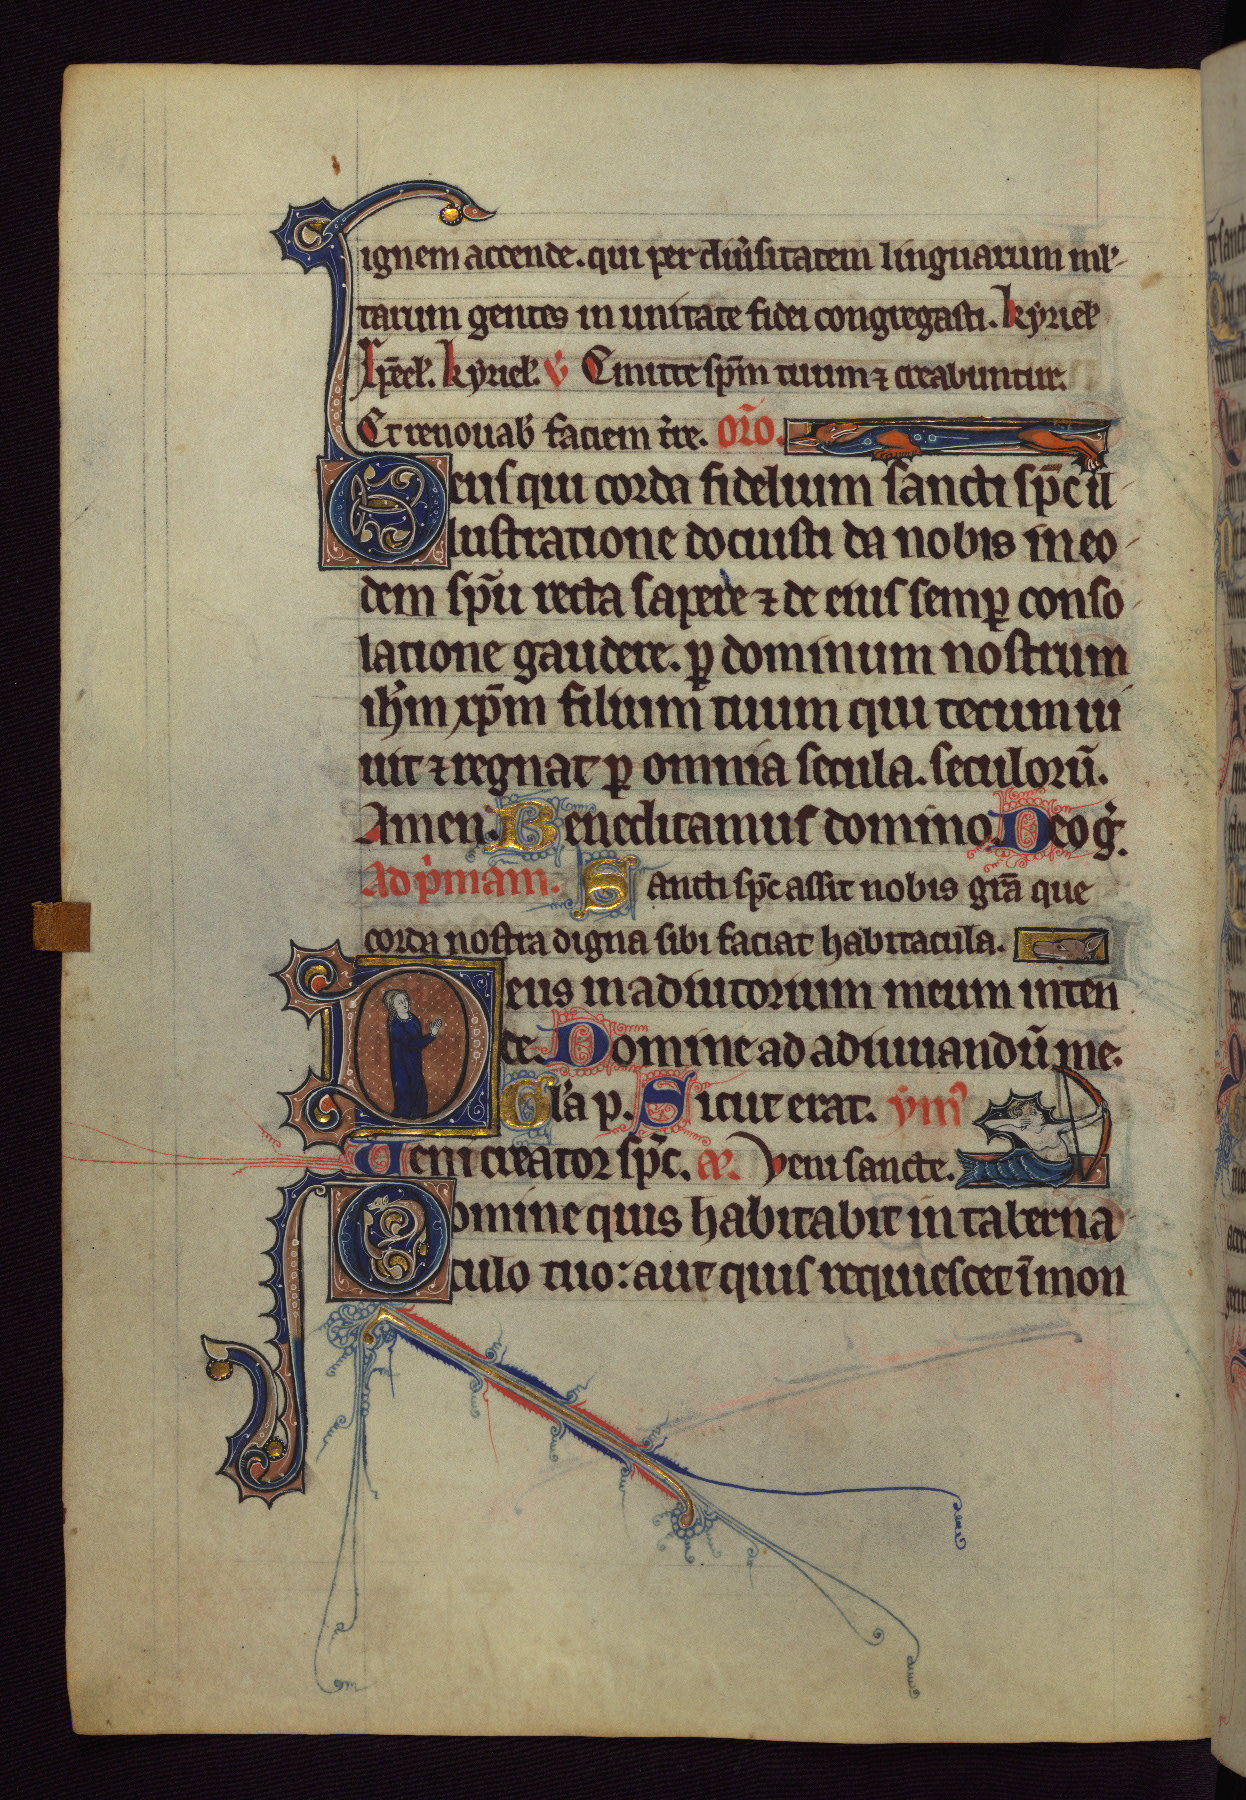 ignem accende. qui per diu̾sitatem linguarum ml̾-
tarum gentes in unitate fidei congregasti. kyriel̾
xp̄el̾. kyriel̾. v̾ Emitte sp̄m tuum ⁊ creabuntur.
Et renouab̾ faciem t̾re. or̄o.
Deus qui corda fidelium sancti sp̄c il
lustratione docuisti da nobis in eo-
dem sp̄u recta sapere ⁊ de eius semꝑ conso-
latione gaudere. ꝑ dominum nostrum
ih̾m xp̄m filium tuum qui tecum ui
uit ⁊ regnat ꝑ omnia secula. seculorū.
Amen. Benedicamus domino. Deo g̾.
Ad p̾mam. Sancti sp̄c assit nobis gr̄a que
corda nostra digna sibi faciat habitacula.
Deus in adiutorium meum inten
de. Domine ad adiuuandū me.
Gl̾a p. Sicut erat. ym̾
Ueni creator sp̄c. añ. Veni sancte.
Domine quis habitabit in taberna
culo tuo: aut quis requiescet ī mon